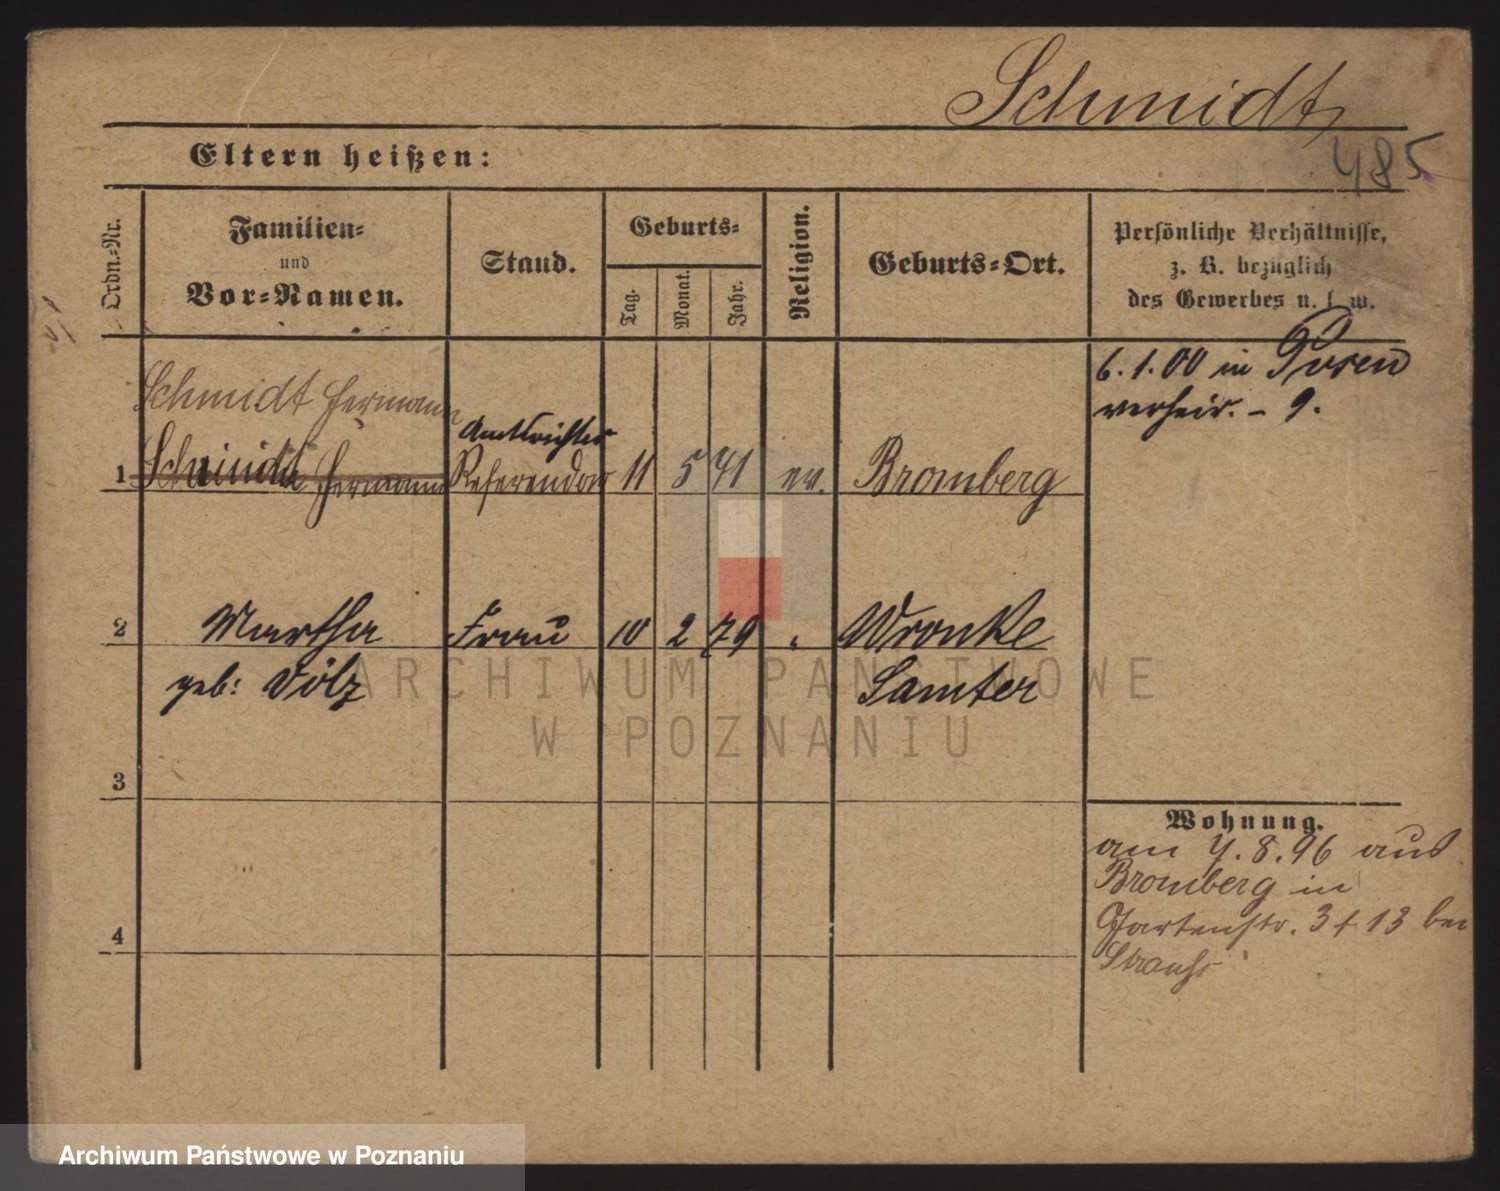 Schmidt
485
Eltern heißen:
Ordn.-Nr.
Familien-
und
Vor-Namen.
Stand.
Geburts-
Tag.
Monat.
Jahr.
Religion.
Geburts-Ort.
Persönliche Verhältnisse,
z. B. bezüglich
des Gewerbes u. s. w.
Schmidt Hermann
Amtsrichter
1 Schmidt Hermann Referendar 11 5 71 ev. Bromberg
6.1.00 in Posen
verheir. - 9.
2 Martha Frau 10 2 79 " Wronke
geb: Völz Samter
3
4
Wohnung.
am 7.8.96 aus
Bromberg in
Gartenstr. 3 + 13 bei
Strauß
ARCHIWUM PAŃSTWOWE
W POZNANIU
Archiwum Państwowe w Poznaniu